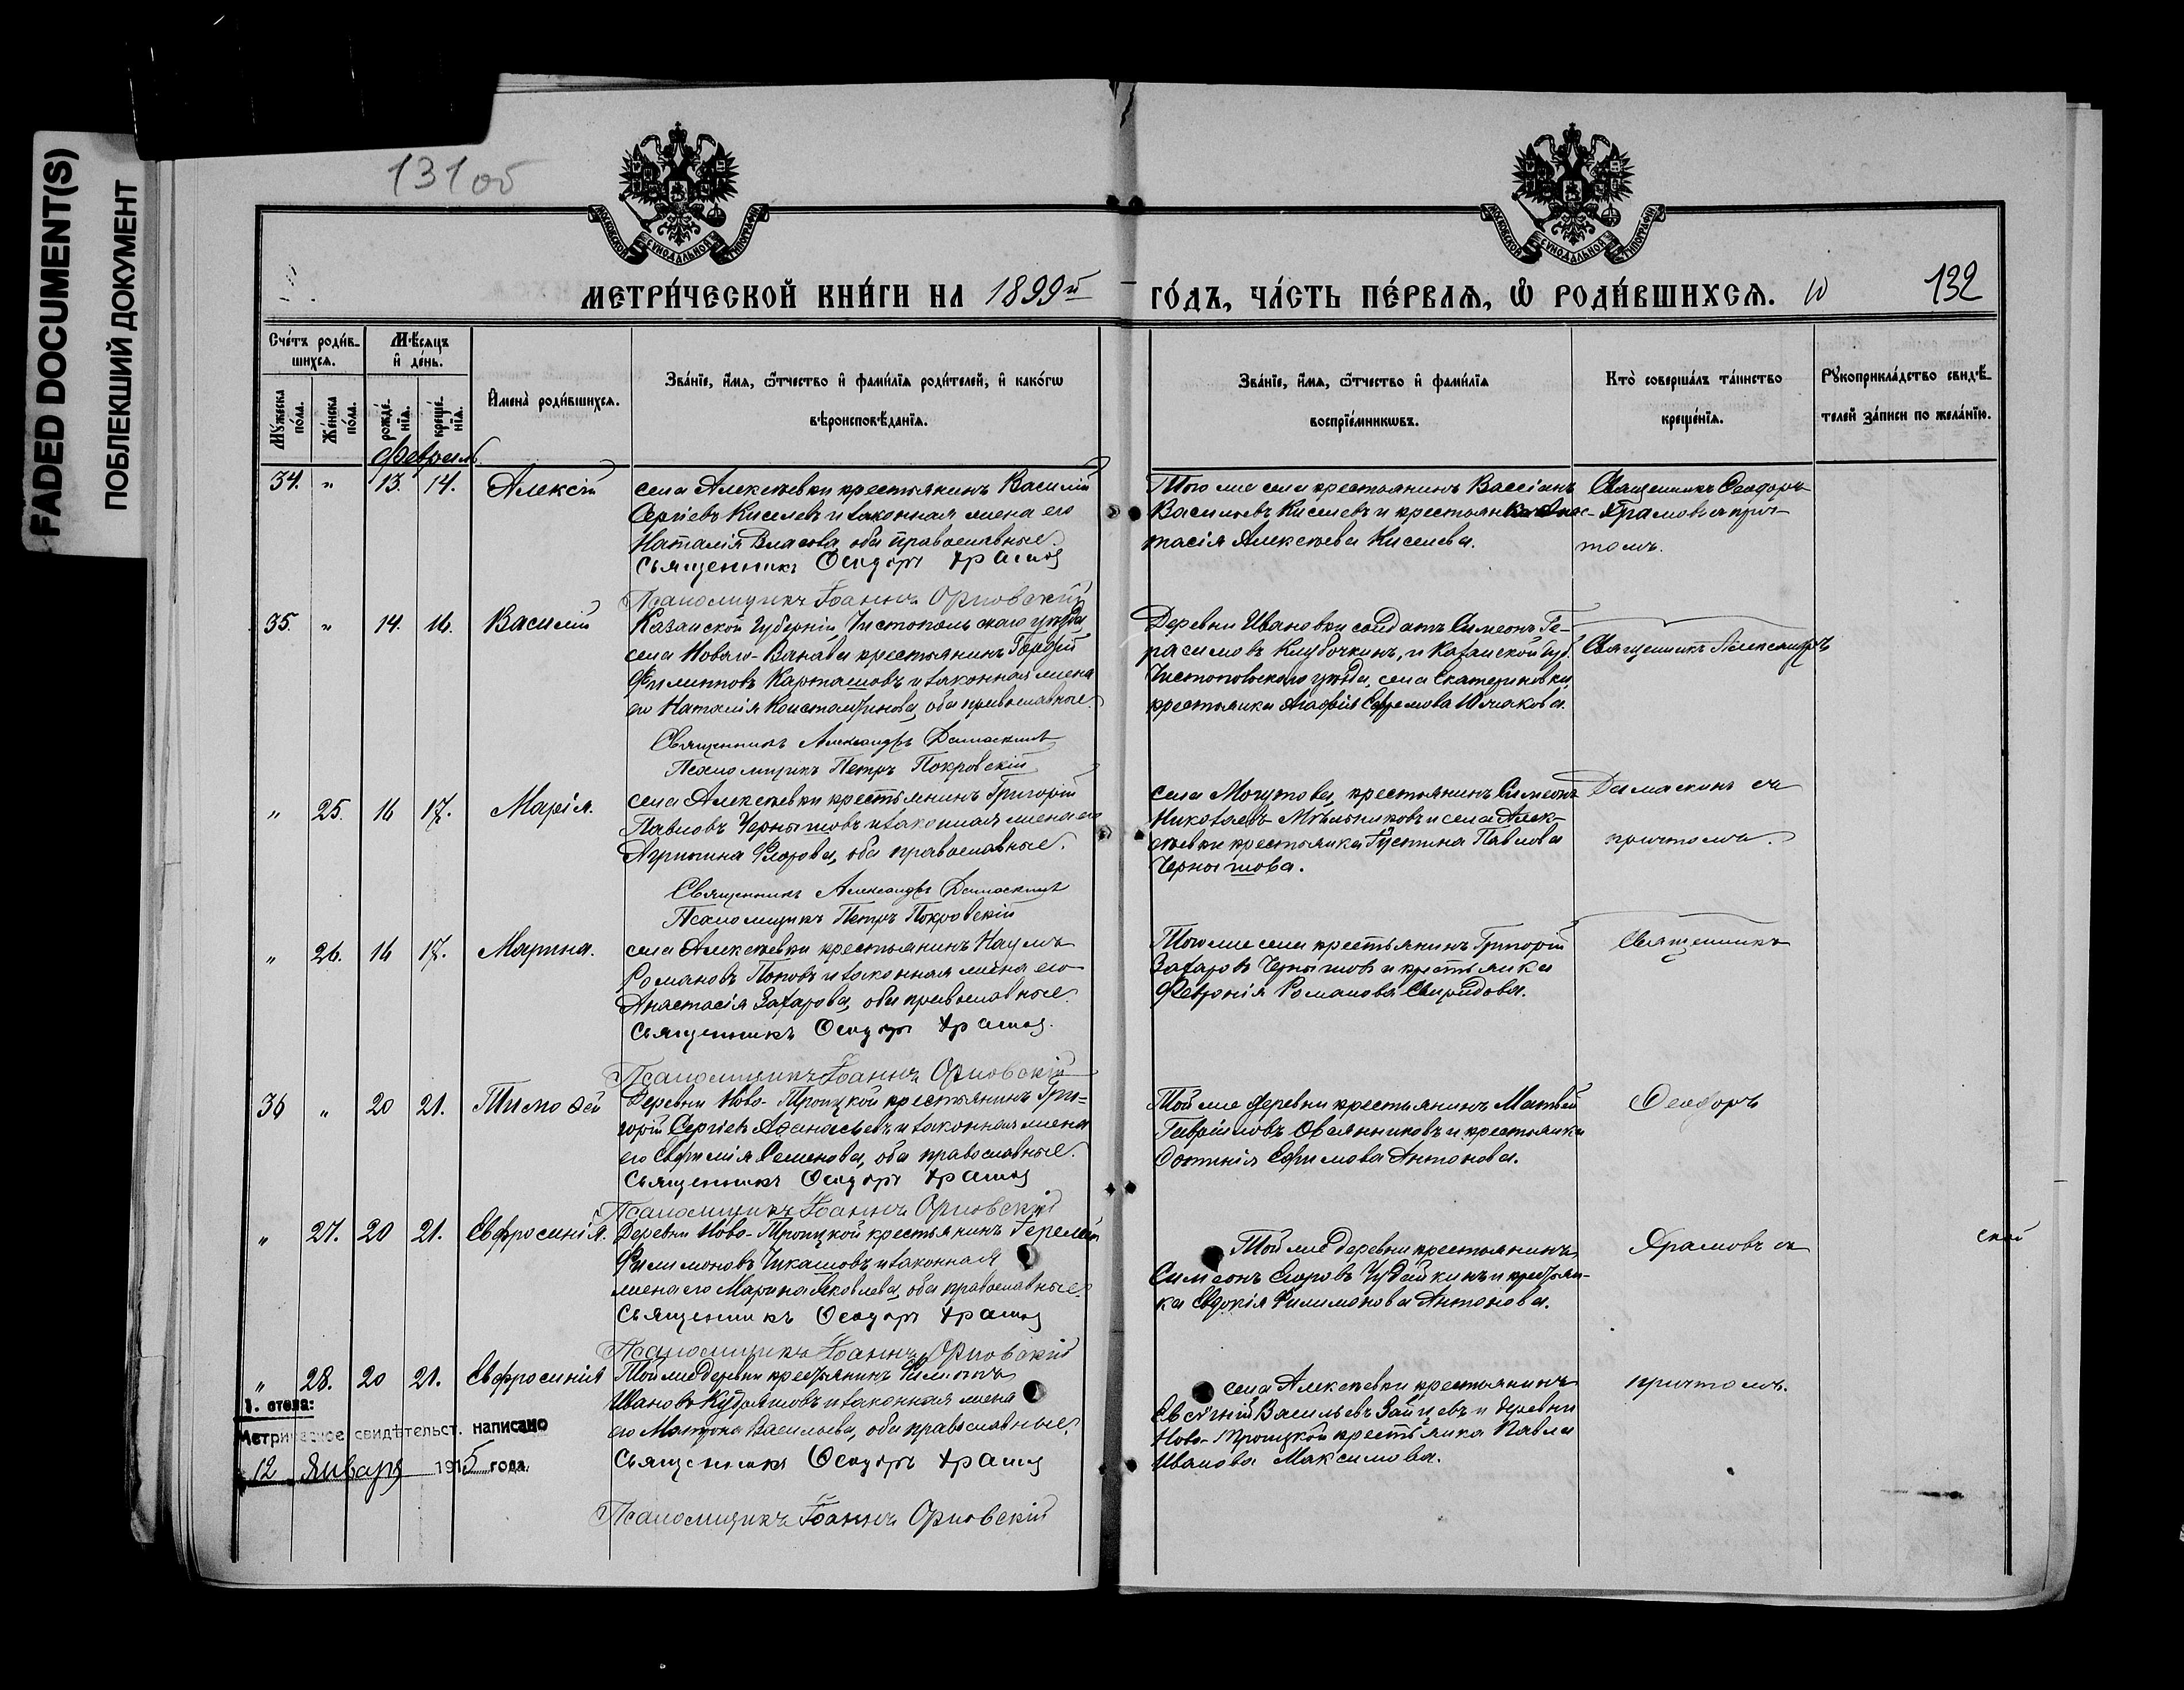 FADED DOCUMENT(S)
ПОБЛЕКШИЙ ДОКУМЕНТ
131об
МОСКОВСКОЙ СУНОДАЛЬНОЙ ТИПОГРАФІИ
МОСКОВСКОЙ СУНОДАЛЬНОЙ ТИПОГРАФІИ
МЕТРИ́ЧЕСКОЙ КНИ́ГИ НА 1899й
ГО́ДЪ, ЧА́СТЬ ПЕ́РВАѦ, Ѽ РОДИ́ВШИХСѦ.
132
Сче́тъ роди́в-
шихсѧ.
Мѣ́сѧцъ
и҆ де́нь.
Мꙋ́жеска
по́ла.
Же́нска
по́ла.
рожде́-
нїѧ.
креще́-
нїѧ.
И҆мена̀ роди́вшихсѧ.
Зва́нїе, и҆́мѧ, ѻ҆́тчество и҆ фами́лїѧ роди́телей, и҆ како́гѡ
вѣроисповѣ́данїѧ.
Зва́нїе, и҆́мѧ, ѻ҆́тчество и҆ фами́лїѧ
воспрїе́мникѡвъ.
Кто̀ соверша́лъ та́инство
креще́нїѧ.
Рꙋкоприкла́дство свидѣ́-
телей за́писи по жела́нїю.
Февраль
34. " 13. 14. Алексій
села Алексѣевки крестьянинъ Василій
Сергіевъ Киселевъ и законная жена его
Наталія Власова, оба православные.
Священникъ Ѳеодоръ Храмов
Псаломщикъ Іоаннъ Орловскій
Того же села крестьянинъ Вассіанъ
Васильевъ Киселевъ и крестьянка Анас-
тасія Алексѣева Киселева.
Священникъ Ѳеодоръ
Храмовъ с прич-
томъ.
35. " 14. 16. Василій
Казанской губерніи, Чистопольскаго уѣзда,
села Новаго-Ванава крестьянинъ Гордій
Филипповъ Карташовъ и законная жена
его Наталія Константинова, оба православные.
Священникъ Александръ Дамаскинъ
Псаломщикъ Петръ Покровскій
Деревни Ивановки солдатъ Симеонъ Ге-
расимовъ Клубочкинъ, и Казанской губ.
Чистопольскаго уѣзда, села Екатериновки
крестьянка Агафія Ефремова
Священникъ Александръ
" 25. 16 17. Марія.
села Алексѣевки крестьянинъ Григорій
Павловъ Чернышовъ и законная жена его
Агрипина Флорова, оба православные.
Священникъ Александръ Дамаскинъ
Псаломщикъ Петръ Покровскій
села Могутова, крестьянинъ Симеонъ
Николаевъ Мѣльниковъ и села Алек-
сѣевки крестьянка Іустина Павлова
Чернышова.
Дамаскинъ съ
причтомъ.
" 26. 16 17. Марина.
села Алексѣевки крестьянинъ Наумъ
Романовъ Поповъ и законная жена его
Анастасія Захарова, оба православные.
Священникъ Ѳеодоръ Храмов.
Псаломщикъ Іоаннъ Орловскій
Того же села крестьянинъ Григорій
Захаровъ Чернышовъ и крестьянка
Февронія Романова Свиридова.
Священникъ
36 " 20 21. Тимоѳей
Деревни Ново-Троицкой крестьянинъ Гри-
горій Сергіевъ Аѳанасьевъ и законная жена
его Евфимія Семенова, оба православные.
Священникъ Ѳеодоръ Храмов
Псаломщикъ Іоаннъ Орловскій
Той же деревни крестьянинъ Матвѣй
Гавріиловъ Овсянниковъ и крестьянка
Ефимова Антонова.
Ѳеодоръ
" 27. 20 21. Евфросинія.
Деревни Ново-Троицкой крестьянинъ Іеремей
Филимоновъ Чикашовъ и законная
жена его Марина Яковлева, оба православные.
Священникъ Ѳеодоръ Храмов
Псаломщикъ Іоаннъ Орловскій
Той же деревни крестьянинъ
Симеонъ Егоровъ Чудайкинъ и крестьян-
ка Евдокія Филимонова Антонова.
Храмовъ съ
ской
" 28. 20 21. Евфросинія
Той же деревни крестьянинъ Филиппъ
Ивановъ Кудряшовъ и законная жена
его Матрона Васильева, оба православные.
Священникъ Ѳеодоръ Храмов
Псаломщикъ Іоаннъ Орловскій
села Алексѣевки крестьянинъ
Евсигній Васильевъ Зайцевъ и деревни
Ново-Троицкой крестьянка Павла
Иванова Максимова.
причтомъ.
стола:
Метрическое свидѣтельст. написано
12 Января 1915 года.